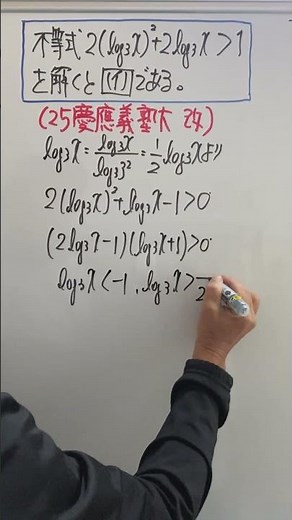 不等式2(log₃x)²+2log₉x>1
を解くと(イ)である。
(25慶應義塾大 改)
log₉x=log₃x/log₃3²=1/2log₃xより
2(log₃x)²+log₃x-1>0
(2log₃x-1)(log₃x+1)>0
log₃x<-1, log₃x>/2